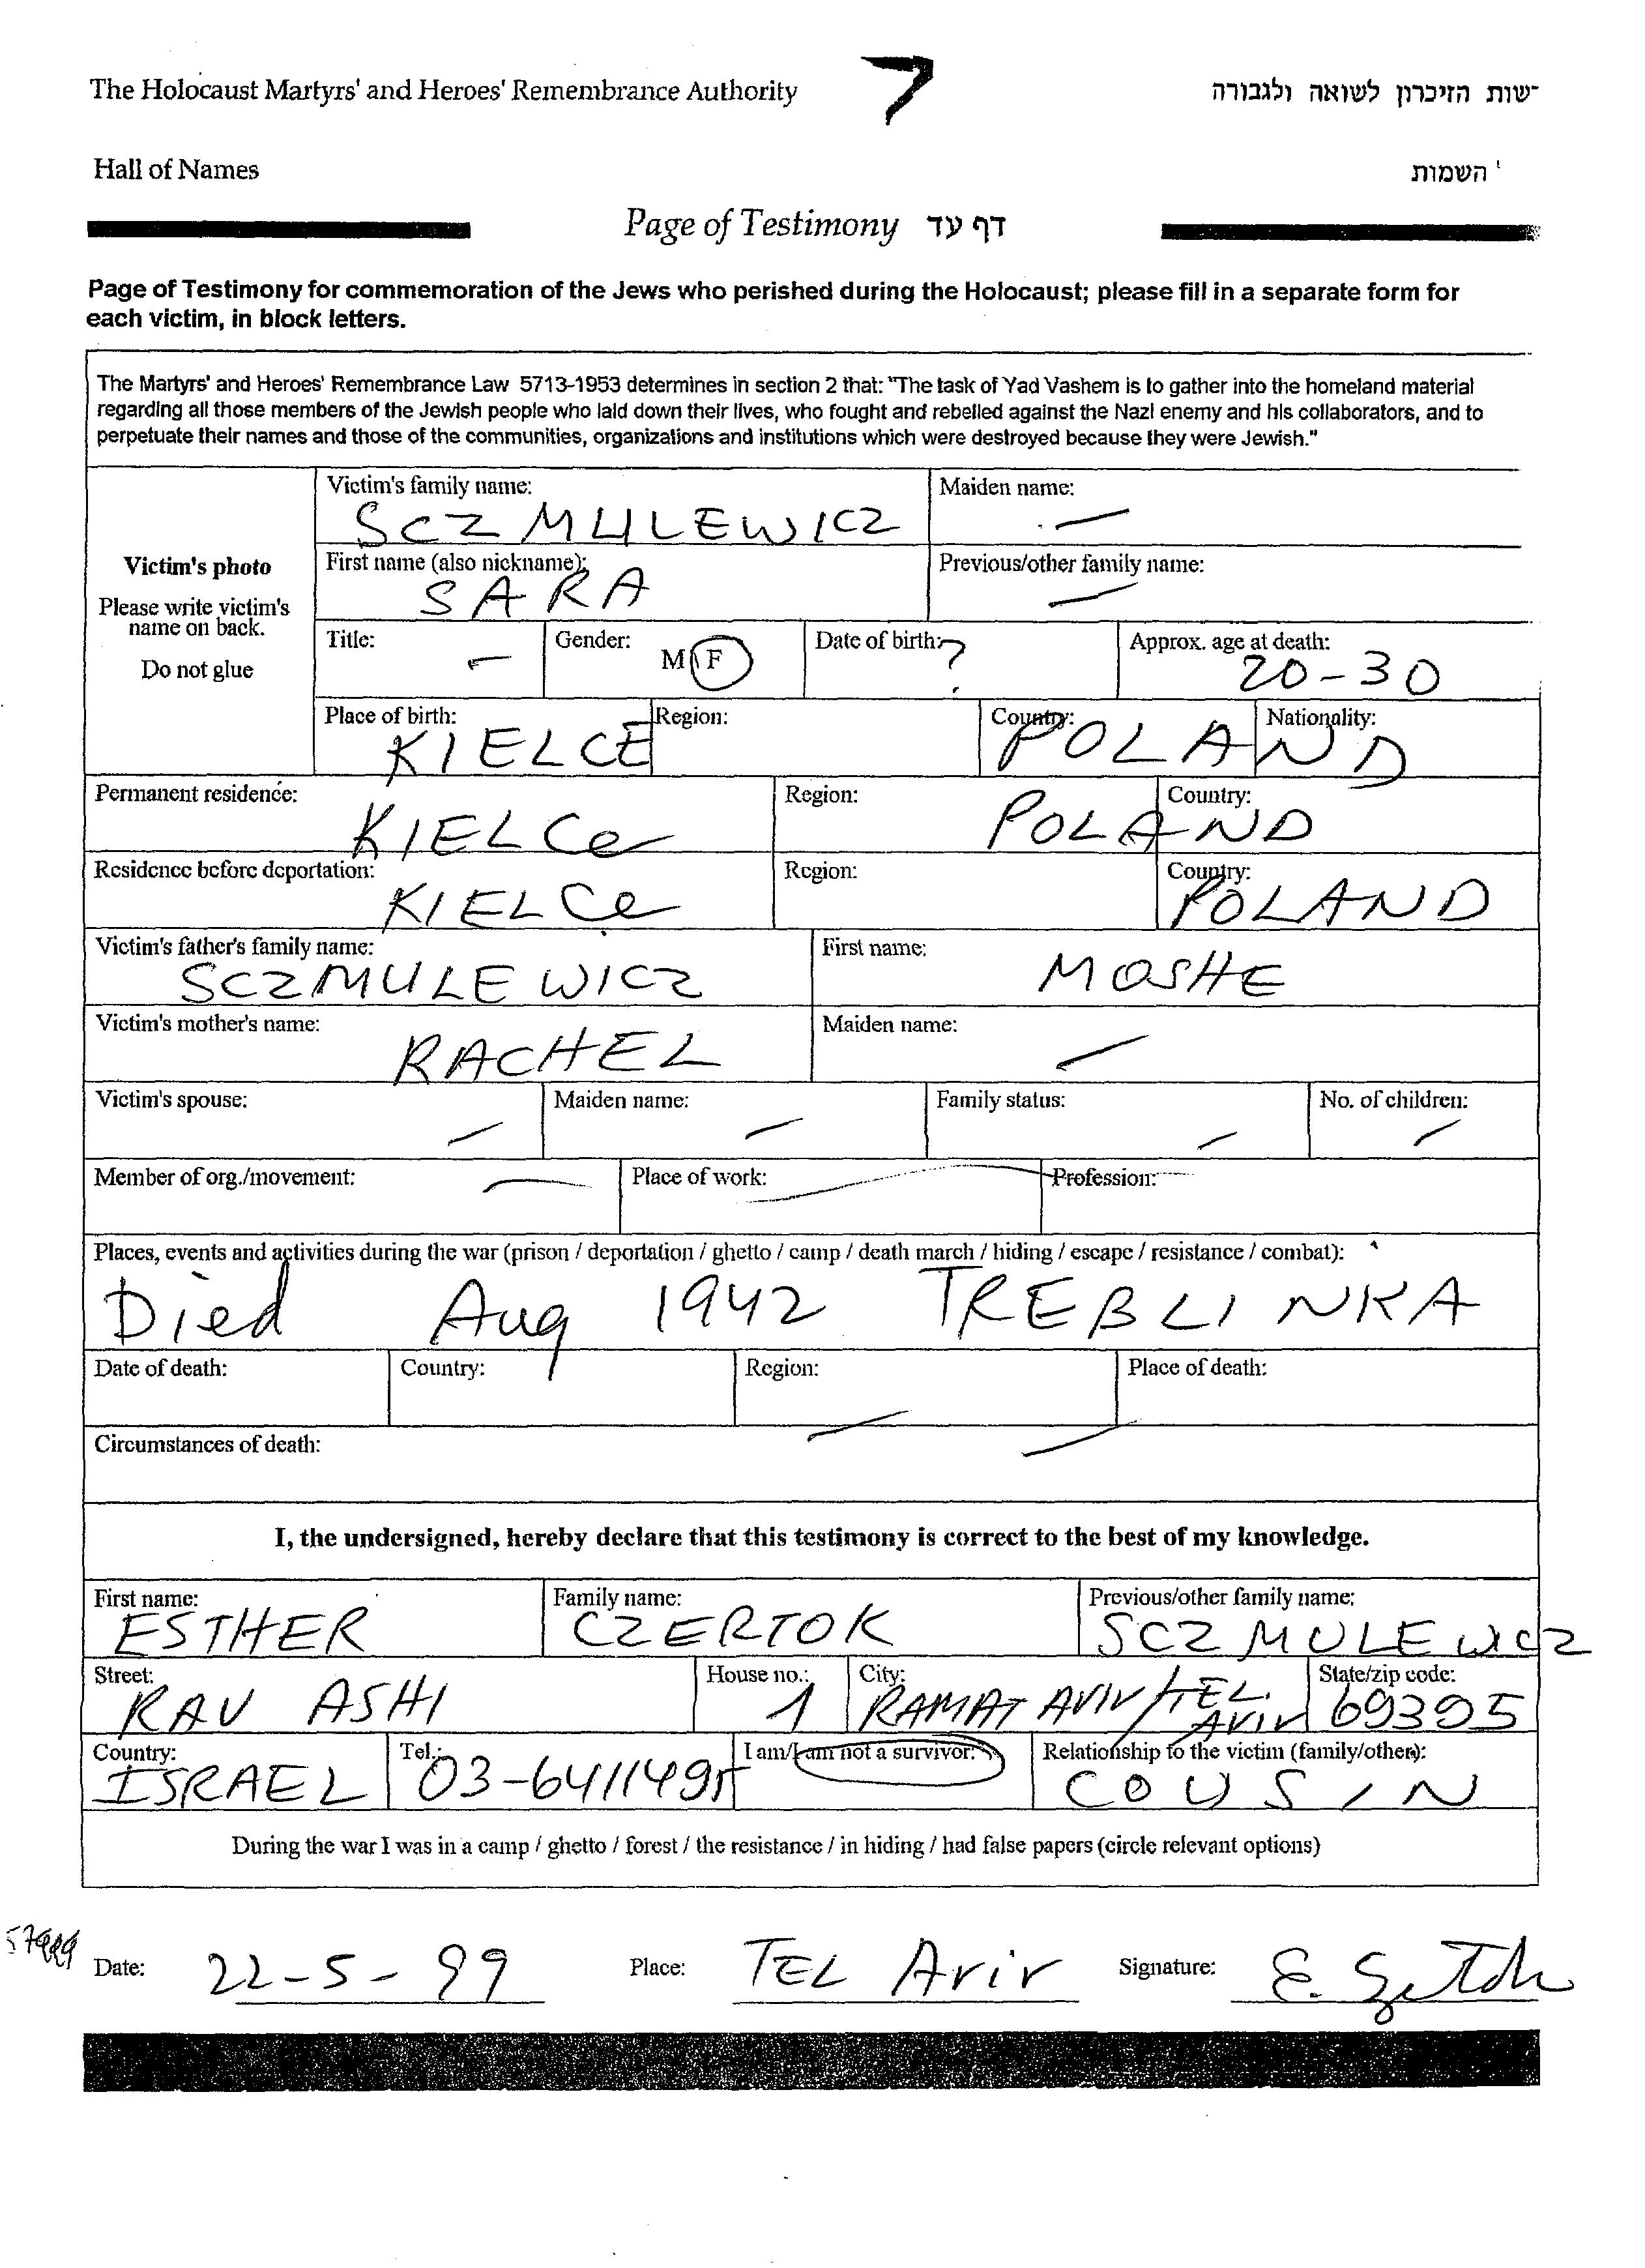 The Holocaust Martyrs' and Heroes' Remembrance Authority 7 שות הזיכרון לשואה ולגבורה
Hall of Names השמות
Page of Testimony דף עד
Page of Testimony for commemoration of the Jews who perished during the Holocaust; please fill in a separate form for
each victim, in block letters.
The Martyrs' and Heroes' Remembrance Law 5713-1953 determines in section 2 that: "The task of Yad Vashem is to gather into the homeland material
regarding all those members of the Jewish people who laid down their lives, who fought and rebelled against the Nazi enemy and his collaborators, and to
perpetuate their names and those of the communities, organizations and institutions which were destroyed because they were Jewish."
Victim's photo
Please write victim's
name on back.
Do not glue
Victim's family name: Maiden name:
SCZMULEWICZ —
First name (also nickname): Previous/other family name:
SARA —
Title: — Gender: M F Date of birth: ? Approx. age at death:
20-30
Place of birth: Region: Country: Nationality:
KIELCE POLAND
Permanent residence: Region: Country:
KIELCe POLAND
Residence before deportation: Region: Country:
KIELCe POLAND
Victim's father's family name: First name:
SCZMULEWICZ MOSHE
Victim's mother's name: Maiden name:
RACHEL —
Victim's spouse: Maiden name: Family status: No. of children:
— — — —
Member of org./movement: — Place of work: — Profession:
Places, events and activities during the war (prison / deportation / ghetto / camp / death march / hiding / escape / resistance / combat):
Died Aug 1942 TREBLINKA
Date of death: Country: Region: Place of death:
Circumstances of death:
I, the undersigned, hereby declare that this testimony is correct to the best of my knowledge.
First name: Family name: Previous/other family name:
ESTHER CZERTOK SCZMULEWICZ
Street: House no.: City: State/zip code:
RAV ASHI 1 RAMAT AVIV/TEL. AVIV 69395
Country: Tel.: I am/I am not a survivor: Relationship to the victim (family/other):
ISRAEL 03-6411495 COUSIN
During the war I was in a camp / ghetto / forest / the resistance / in hiding / had false papers (circle relevant options)
Date: 22-5-99 Place: TEL Aviv Signature: